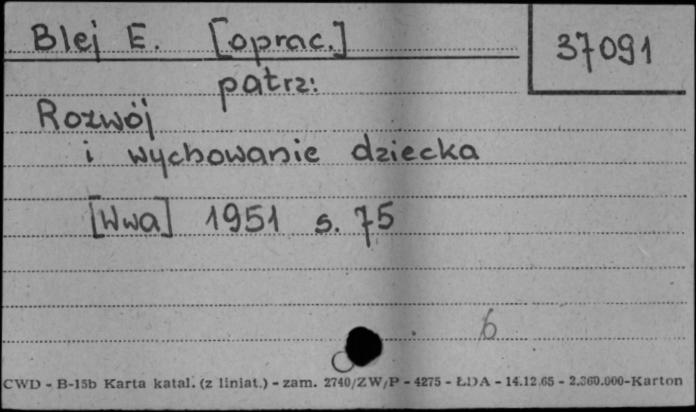 Blej E. [oprac.]
37091
patrz:
Rozwój
i wychowanie dziecka
[Wwa] 1951 s. 75
6
CWD - B-15b Karta katal. (z liniat.) - zam. 2740/ZW/P - 4275 - ŁDA - 14.12.65 - 2.360.000-Karton